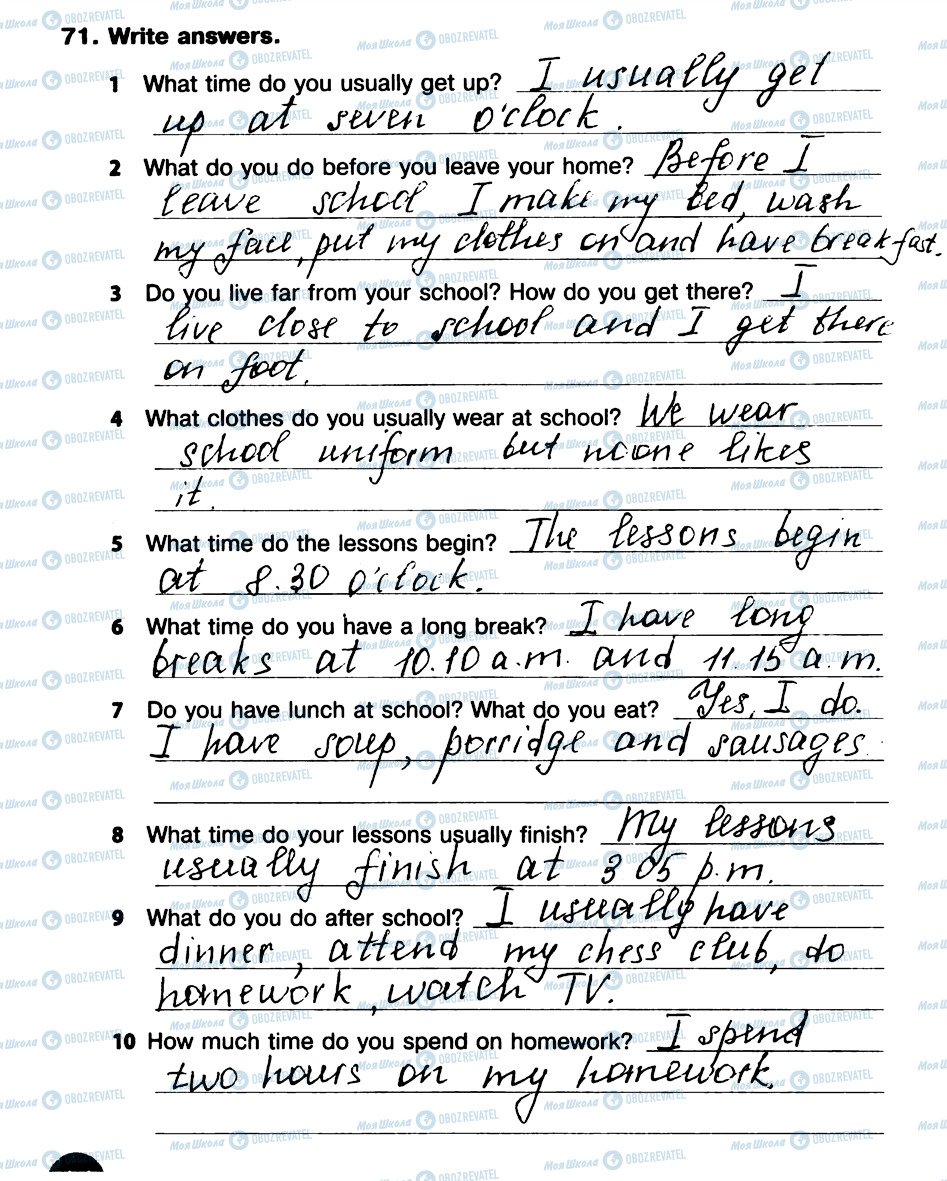 71. Write answers.
1 What time do you usually get up? I usually get
up at seven o'clock.
2 What do you do before you leave your home? Before I
leave school I make my bed, wash
my face, put my clothes on and have breakfast.
3 Do you live far from your school? How do you get there? I
live close to school and I get there
on foot.
4 What clothes do you usually wear at school? We wear
school uniform but noone likes
it.
5 What time do the lessons begin? The lessons begin
at 8.30 o'clock.
6 What time do you have a long break? I have long
breaks at 10.10 a.m. and 11.15 a.m.
7 Do you have lunch at school? What do you eat? Yes, I do.
I have soup, porridge and sausages
8 What time do your lessons usually finish? My lessons
usually finish at 3 05 p.m.
9 What do you do after school? I usually have
dinner, attend my chess club, do
homework, watch TV.
10 How much time do you spend on homework? I spend
two hours on my homework.
МОЯ ШКОЛА OBOZREVATEL